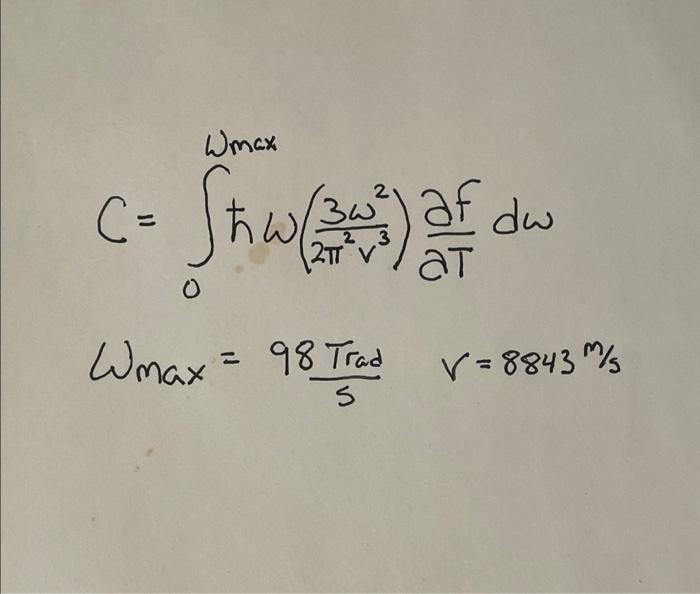 ωmax
C = ∫ ħω(3ω²/2π²v³) ∂f/∂T dω
0
ωmax = 98 Trad/s v = 8843 m/s